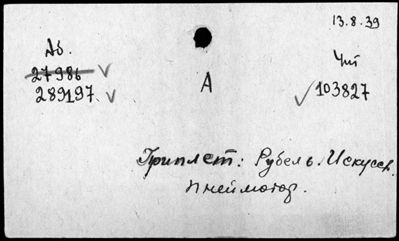 13.8.39
Аб.
27986
289197.
А
Чит
103827
Приплет: Рубель. Искусств.
пнеймотор.